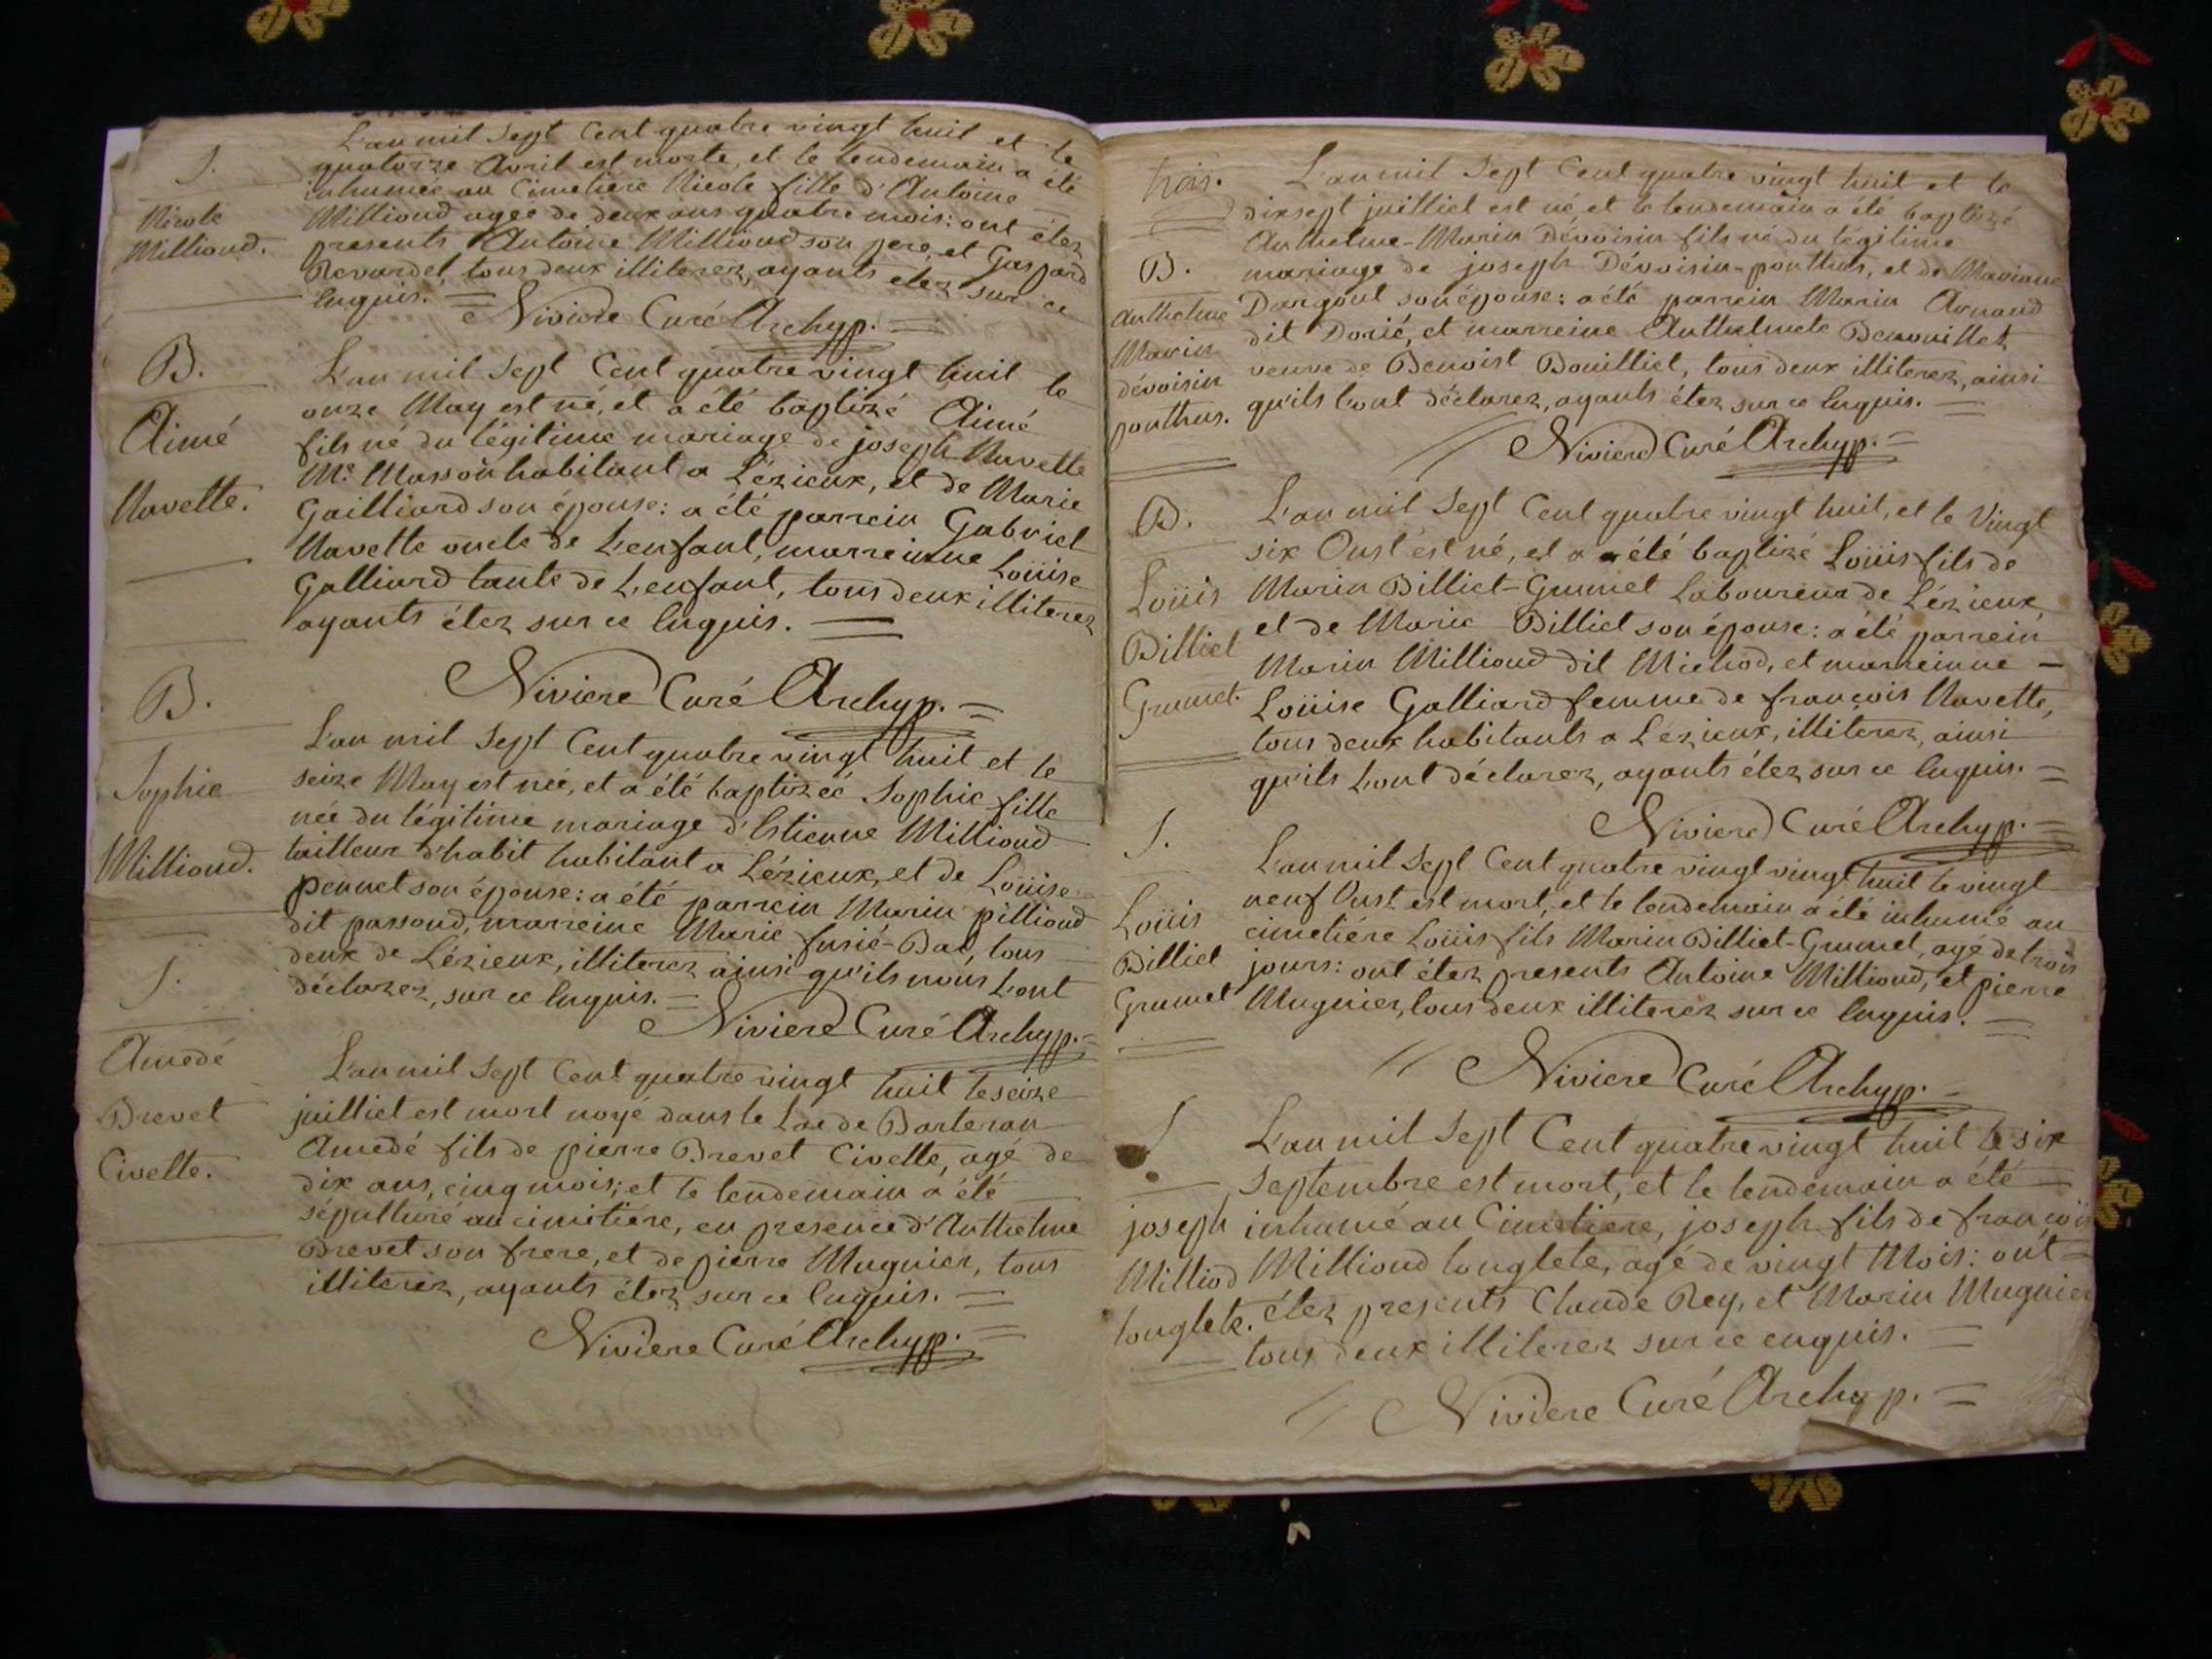 S.
Nicole
Milliond.
L'an mil Sept Cent quatre vingt huit et le
quatorze Avril est morte, et le lendemain a été
inhumée au Cimetiére Nicole fille d'Antoine
Milliond agée de deux ans quatre mois: ont étez
presents Antoine Milliond son pere, et Gaspard
Revardel, tous deux illiterez, ayants étez sur ce
Enquis.
Niviere Curé Archyp.
B.
Aimé
Navette.
L'an mil Sept Cent quatre vingt huit le
onze May est né, et a été baptizé Aimé
fils né du légitime mariage de joseph Navette
Me. Masson habitant a Lézieux, et de Marie
Gailliard son épouse: a été parrein Gabriel
Navette oncle de L'enfant, marreinne Loüise
Galliard tante de L'enfant, tous deux illiterez
ayants étez sur ce Enquis.
Niviere Curé Archyp.
B.
Sophie
Milliond.
L'an mil Sept Cent quatre vingt huit et le
seize May est née, et a été baptizée Sophie fille
née du légitime mariage d'Estienne Milliond
tailleur d'habit habitant a Lézieux, et de Loüise
pennet son épouse: a été parrein Marin pilliond
dit passond, marreine Marie fusié-Bal, tous
deux de Lézieux, illiterez ainsi qu'ils nous L'ont
déclarez, sur ce Enquis.
Niviere Curé Archyp.
S.
Amedé
Brevet
Civette.
L'an mil Sept Cent quatre vingt huit le seize
juilliet est mort noyé dans le Lac de Barteran
Amedé fils de pierre Brevet Civette, agé de
dix ans, cinq mois; et le lendemain a été
sépulturé au cimitiére, en presence d'Anthelme
Brevet son frere, et de pierre Mugnier, tous
illiterez, ayants étez sur ce Enquis.
Niviere Curé Archyp.
trois.
B.
Anthelme
Marin
dévoisin
ponthus.
L'an mil Sept Cent quatre vingt huit et le
dixsept juilliet est né, et le lendemain a été baptizé
Anthelme-Marin Dévoisin fils né du légitime
mariage de joseph Dévoisin-ponthus, et de Mariane
Dargout son épouse: a été parrein Marin Arnand
dit Dorié, et marreine Anthelmete Benouillet
veuve de Benoist Bouilliet, tous deux illiterez, ainsi
qu'ils L'ont déclarez, ayants étez sur ce Enquis.
Niviere Curé Archyp.
B.
Loüis
Billiet
Grumet.
L'an mil Sept Cent quatre vingt huit, et le Vingt
six Oust est né, et a été baptizé Loüis fils de
Marin Billiet-Grumet Laboureur de Lézieux,
et de Marie Billiet son épouse: a été parrein
Marin Milliond dit Michod, et marreinne
Loüise Galliard femme de françois Navette,
tous deux habitants a Lézieux, illiterez, ainsi
qu'ils L'ont déclarez, ayants étez sur ce Enquis.
Niviere Curé Archyp.
S.
Loüis
Billiet
Grumet
L'an mil Sept Cent quatre vingt vingt huit le vingt
neuf Oust est mort, et le lendemain a été inhumé au
cimetiére Loüis fils Marin Billiet-Grumet, agé de trois
jours: ont étez presents Antoine Milliond, et pierre
Mugnier, tous deux illiterez sur ce Enquis.
Niviere Curé Archyp.
S
joseph
Milliod
Longlete.
L'an mil Sept Cent quatre vingt huit le six
Septembre est mort, et le lendemain a été
inhumé au Cimetiere, joseph fils de françois
Milliond Longlete, agé de vingt Mois: ont
étez presents Claude Rey, et Marin Mugnier
tous deux illiterez sur ce enquis.
Niviere Curé Archyp.